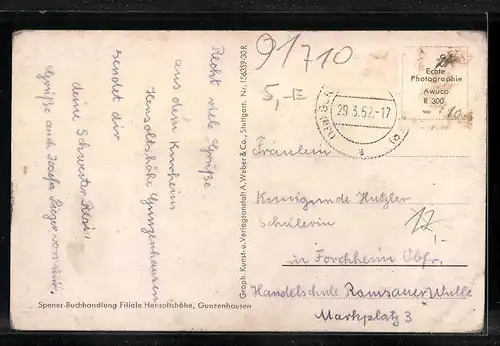 91710
5,-E
Echte
Photographie
Awuco
R 300
29.3.52.-17
Recht viele Grüße
aus dem Kurheim
Hensoltshöhe Gunzenhausen
sendet dir
deine Schwester Resi.
Grüße auch Josefa Rieger von mir.
Graph. Kunst- u. Verlagsanstalt A. Weber & Co., Stuttgart. Nr. 156339-30 R
Fräulein
Kunigunde Hutzler
Schülerin
in Forchheim Obfr.
Handelschule
Markplatz 3
12,-
Spener-Buchhandlung Filiale Hensoltshöhe, Gunzenhausen